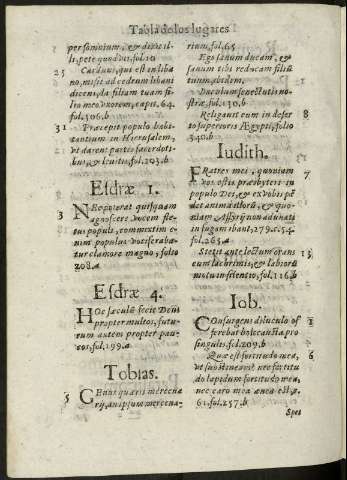 Tabla de los lugares
per somnium, & dixit il-
li, pete quod vis, fol. 10
25 Carduus, qui est in liba
no, misit ad cedrum libani
dicens, da filiam tuam fi-
lio meo vxorem, capit. 64.
fol. 306. b
31 Præcepit populo habi-
tantium in Hierusalem,
vt darent partes sacerdoti-
bus, & leuitis, fol. 203. b
Esdræ 1.
3 NEc poterat quisquam
agnoscere vocem fle-
tus populi, commixtim e-
nim populus vociferaba-
tur clamore magno, folio
208. a
Esdræ 4.
HOc sæculũ fecit Deus
propter multos, futu-
rum autem propter pau-
cos, fol. 199. a
Tobias.
5 GEnus quæris mercena
rij, an ipsum mercena-
rium, fol. 65
Ego sanum ducam, &
sanum tibi reducam filiũ
tuum, ibidem.
Baculum senectutis no-
stræ, fol. 130. b
Religauit eum in defer 8
to superioris Ægypti, folio
340. b
Iudith.
FRatres mei, quoniam 7
vos estis præsbyteri in
populo Dei, & ex vobis pẽ
det anima illorũ, & quo-
niam Assyrij non adunati
in fugam ibant, 279. c. 54.
fol. 265. a
Stetit ante lectum orans 13
cum lachrimis, & labiorũ
motu in silentio, fol. 116. b
Iob.
COnsurgens diluculo of 1
ferebat holocausta pro
singulis. fol. 209. b
Quæ est fortitudo mea, 6
vt sustineam? nec fortitu
do lapidum fortitudo mea,
nec caro mea ænea est, c.
61. fol. 257. b
Spei